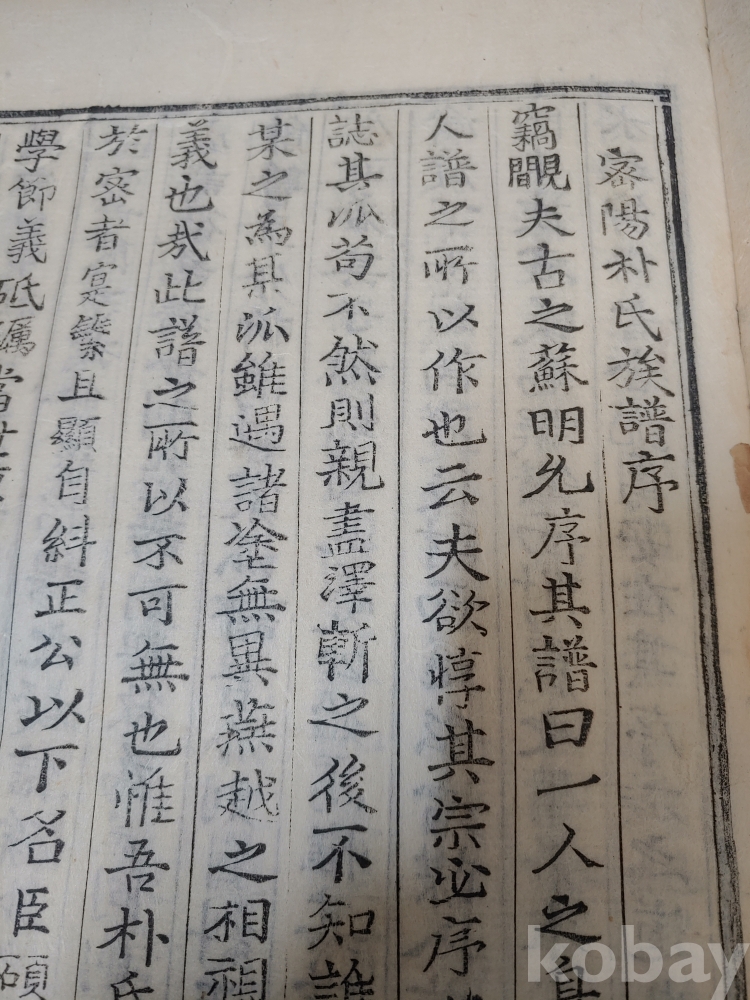 密陽朴氏族譜序
竊覵夫古之蘇明允序其譜曰一人之身
人譜之所以作也云夫欲惇其宗必序
誌其派苟不然則親盡澤斬之後不知誰
某之為其派雖遇諸塗無異燕越之相視
義也㢤此譜之所以不可無也惟吾朴氏
於密者寔繁且顯自糾正公以下名臣碩
學節義砥礪當世
kobay